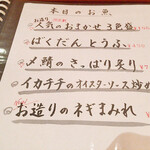 本日のお魚
人気のおまかせ3色盛
ばくだんとうふ
〆鯖のさっぱり炙り
イカゲソのオイスターソース炒め
お造りのネギまみれ